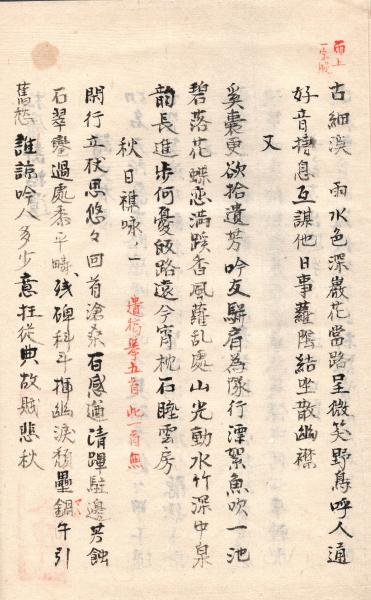 而上
一字脫
古細渓雨水色深巖花當路呈微笑野鳥呼人通
好音捿息互謀他日事蘿陰結坐散幽襟
又
奚囊更欲拾遺芳吟友駢肩為隊行漂絮魚吹一池
碧落花蝶恋滿蹊香風蘿乱處山光動水竹深中泉
韵長進步何憂飯路遠今宵枕石睡雲房
秋日襍咏一
遺稿舉五首此一首無
閑行立杖思悠々回首滄桑百感遒清蹕駐邊芳蝕
石翠轡過處黍平疇残碑科斗揮幽淚頽壘銅牛引
舊愁誰諒吟人多少意狂從典故賦悲秋